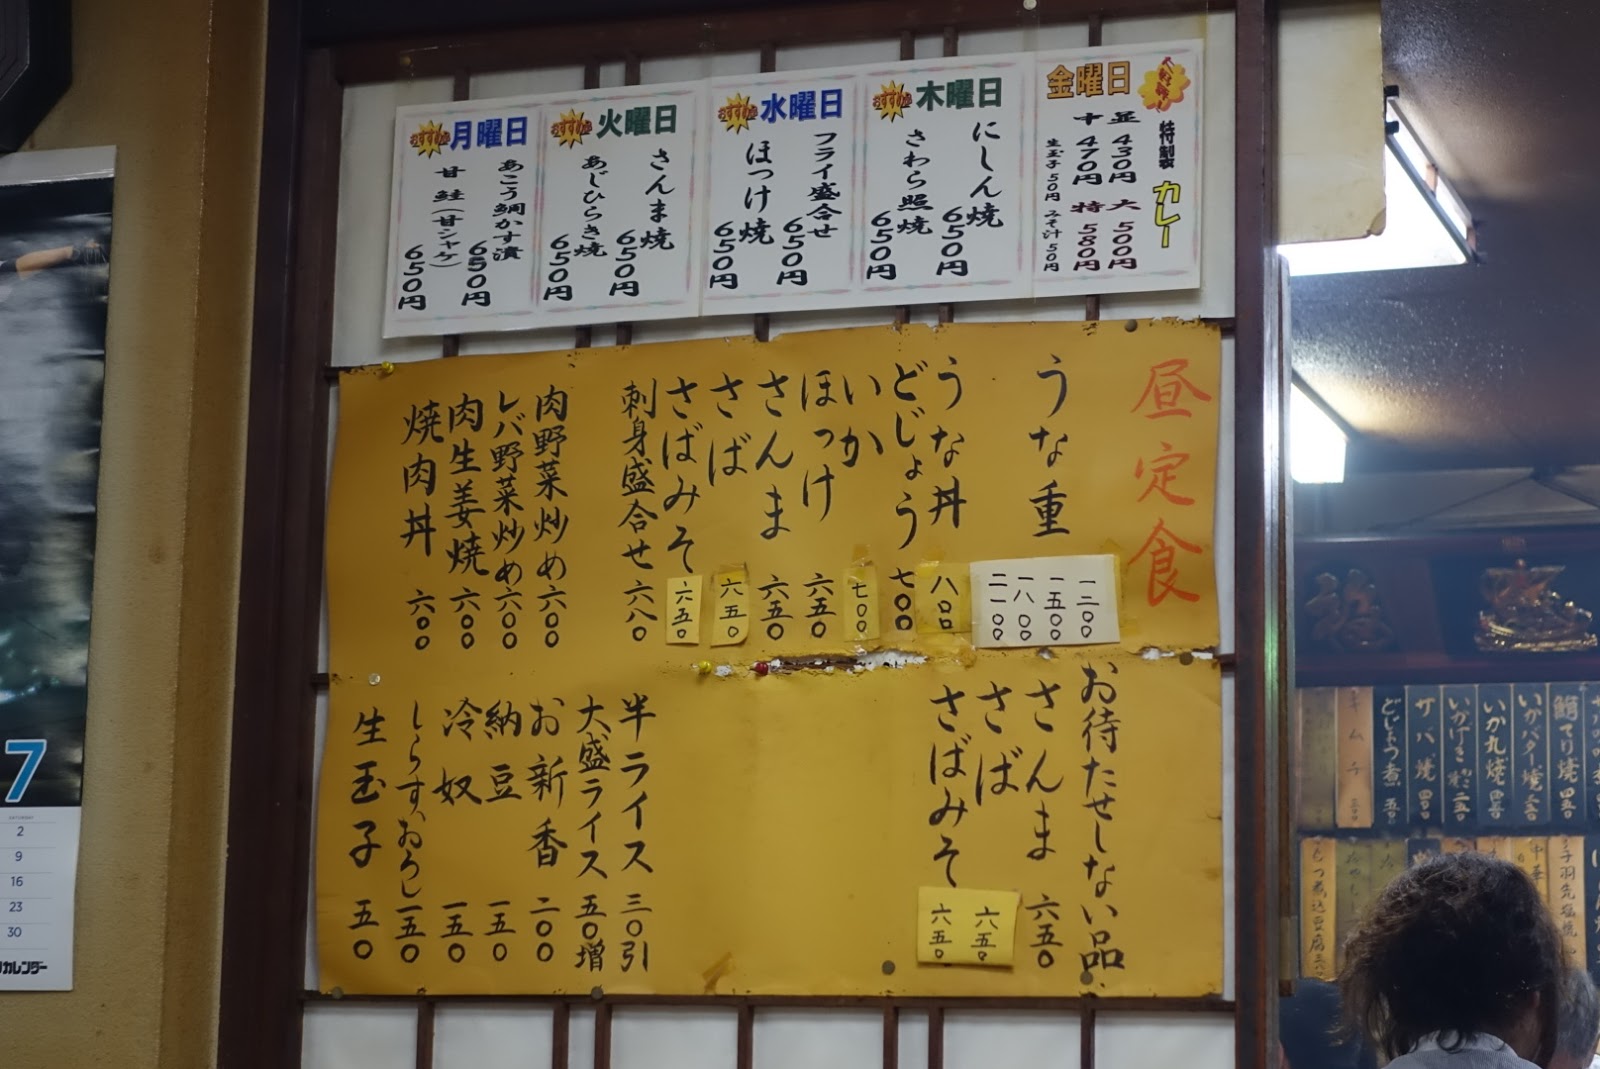 おすすめ
月曜日
あこう鯛かす漬
650円
甘鮭(甘シャケ)
650円
おすすめ
火曜日
さんま焼
650円
あじひらき焼
650円
おすすめ
水曜日
フライ盛合せ
650円
ほっけ焼
650円
おすすめ
木曜日
にしん焼
650円
さわら照焼
650円
金曜日
特製 カレー
並 430円 大 500円
中 470円 特 580円
生玉子50円 みそ汁50円
昼定食
うな重 一二〇〇 一五〇〇 一八〇〇 二一〇〇
うな丼 八〇〇
どじょう 七〇〇
いか 七〇〇
ほっけ 六五〇
さんま 六五〇
さば 六五〇
さばみそ 六五〇
刺身盛合せ 六八〇
肉野菜炒め 六〇〇
レバ野菜炒め 六〇〇
肉生姜焼 六〇〇
焼肉丼 六〇〇
お待たせしない品
さんま 六五〇
さば 六五〇
さばみそ 六五〇
半ライス 三〇引
大盛ライス 五〇増
お新香 二〇〇
納豆 一五〇
冷奴 一五〇
しらすおろし 一五〇
生玉子 五〇
7
SATURDAY
2
9
16
23
30
カレンダー
いかバター焼
いか丸焼
サバ焼
どじょう煮
キムチ
中華